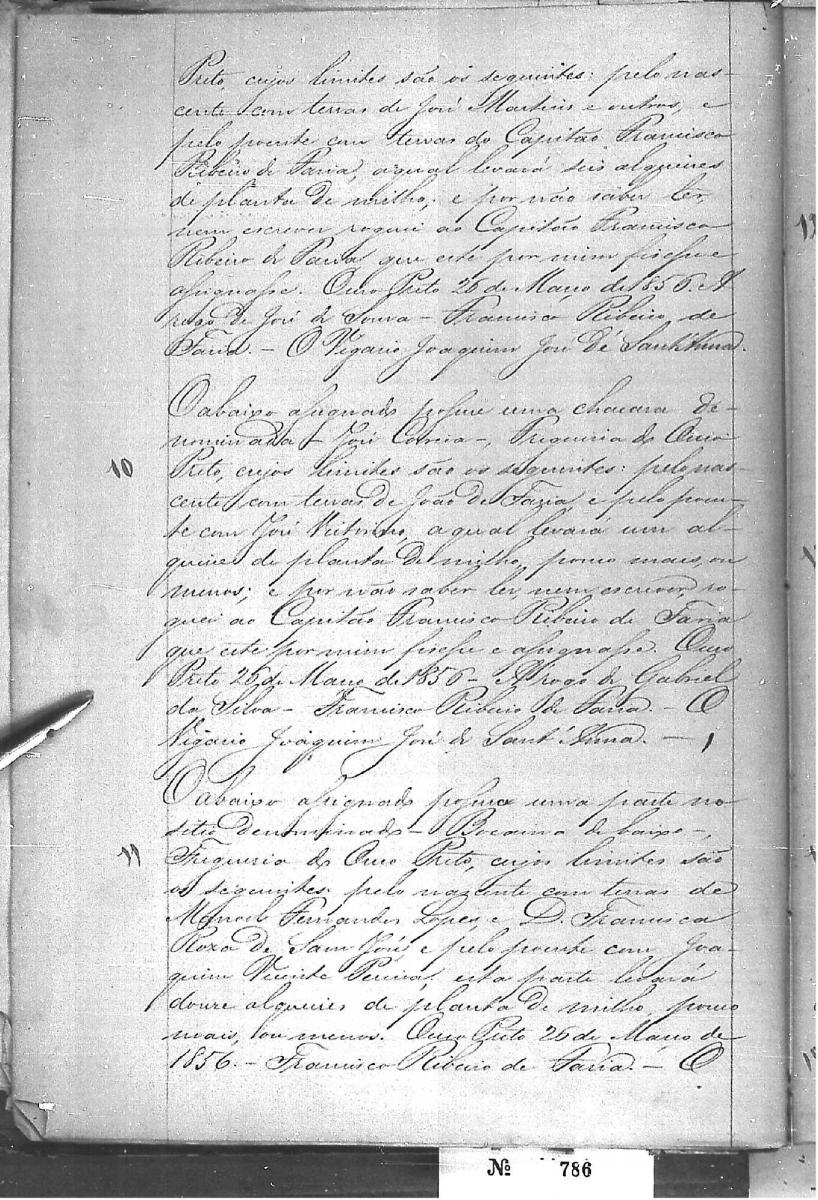 Preto, cujos limites são os seguintes: pelo nas-
cente com terras de José Martins e outros, e
pelo poente com terras do Capitão Francisco
Ribeiro de Faria, a qual levará seis alqueires
de planta de milho; e por não saber ler,
nem escrever roguei ao Capitão Francisco
Ribeiro de Faria que este por mim fisesse e
assignasse. Ouro Preto 26 de Março de 1856. A
rogo de José de Souza - Francisco Ribeiro de
Faria. - O Vigario Joaquim José de Sant'Anna.
O abaixo assignado possue uma chacara de-
nominada - José Correia -, Freguesia do Ouro
10
Preto, cujos limites são os seguintes: pelo nas-
cente com terras de João de e pelo poen-
te com José Victorino, a qual levará um al-
queire de planta de milho, pouco mais, ou
menos; e por não saber ler, nem escrever, ro-
guei ao Capitão Francisco Ribeiro de Faria
que este por mim fisesse e assignasse. Ouro
Preto 26 de Março de 1856 - A rogo de Gabriel
da Silva - Francisco Ribeiro de Faria. - O
Vigario Joaquim José de Sant'Anna. -
O abaixo assignado possue uma parte no
sitio denominado - de baixo -,
11
Freguesia do Ouro Preto, cujos limites são
os seguintes: pelo nascente com terras de
Manoel Fernandes Lopes e D. Francisca
Roza de Sam José, e pelo poente com Joa-
quim Vicente Pereira, esta parte levará
douze alqueires de planta de milho, pouco
mais, ou menos. Ouro Preto 26 de Março de
1856. - Francisco Ribeiro de Faria. - O
Nº 786